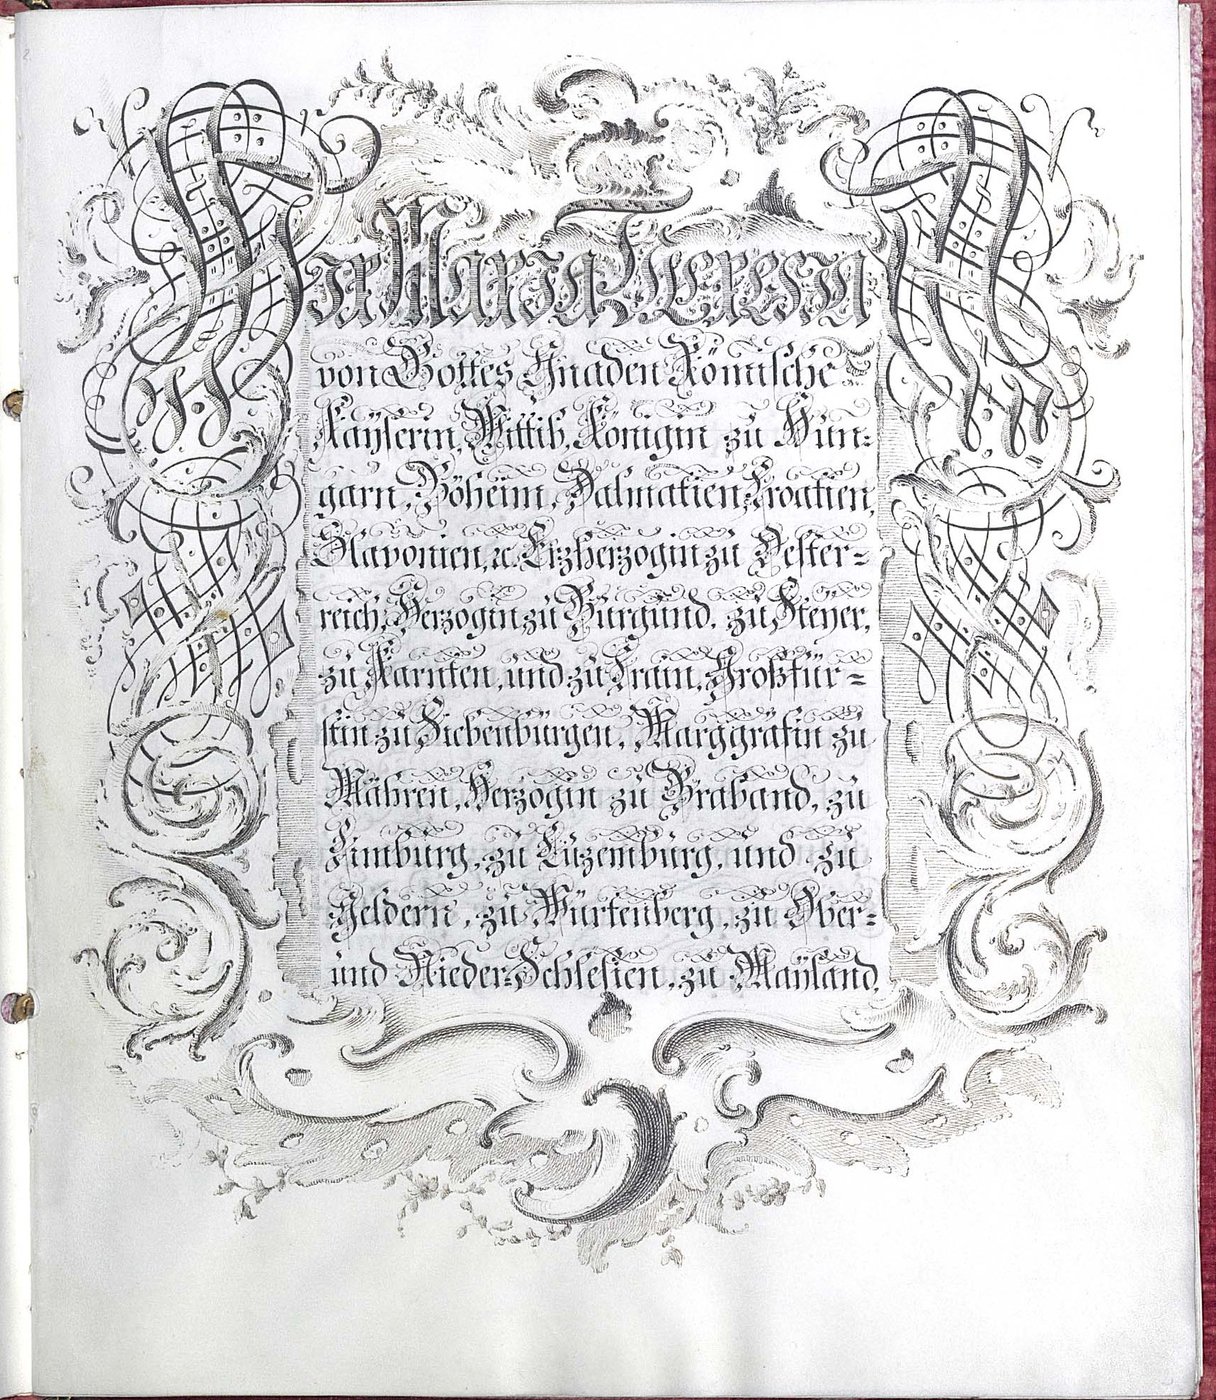 Wir Maria Theresia
von Gottes Gnaden Römische
Kaÿserin, Wittib, Königin zu Hun-
garn, Böheim, Dalmatien, Croatien,
Slavonien, ⁊c. Erzherzogin zu Oester-
reich, Herzogin zu Burgund, zu Steyer,
zu Kärnten, und zu Crain, Großfür-
stin zu Siebenbürgen, Marggräfin zu
Mähren, Herzogin zu Braband, zu
Limburg, zu Luzemburg, und zu
Geldern, zu Würtenberg, zu Ober-
und Nieder-Schlesien, zu Mayland,